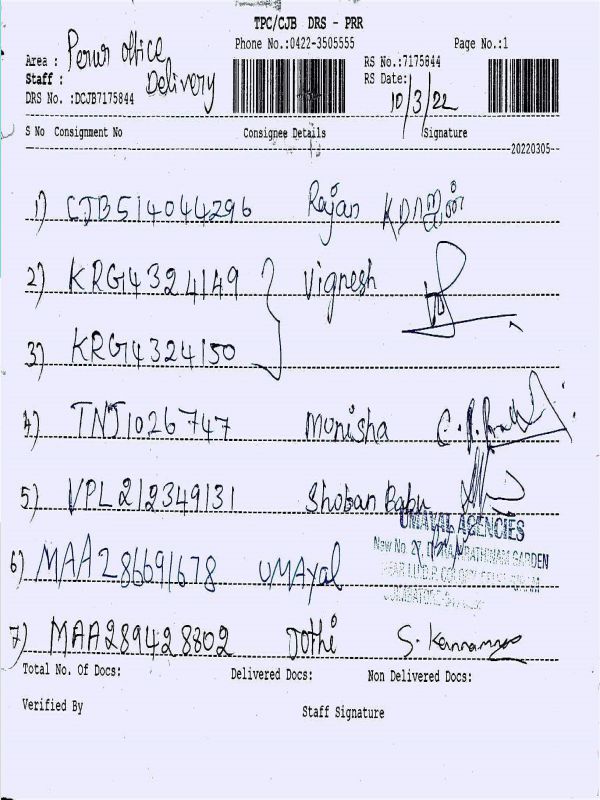 TPC/CJB DRS - PRR
Phone No.:0422-3505555 Page No.:1
Area : Perur office
Staff : Delivery
DRS No. :DCJB7175844
RS No.:7175844
RS Date: 10/3/22
S No Consignment No Consignee Details Signature
20220305
1) CJB514044296 Rajan
2) KRG14324149 Vignesh
3) KRG14324150
4) TNJ1026747 Monisha
5) VPL212349131 Shoban Babu
UMAYAL AGENCIES
New No. 27, GARDEN
6) MAA286691678 UMAyal
7) MAA289428802 Jothi
Total No. Of Docs: Delivered Docs: Non Delivered Docs:
Verified By Staff Signature